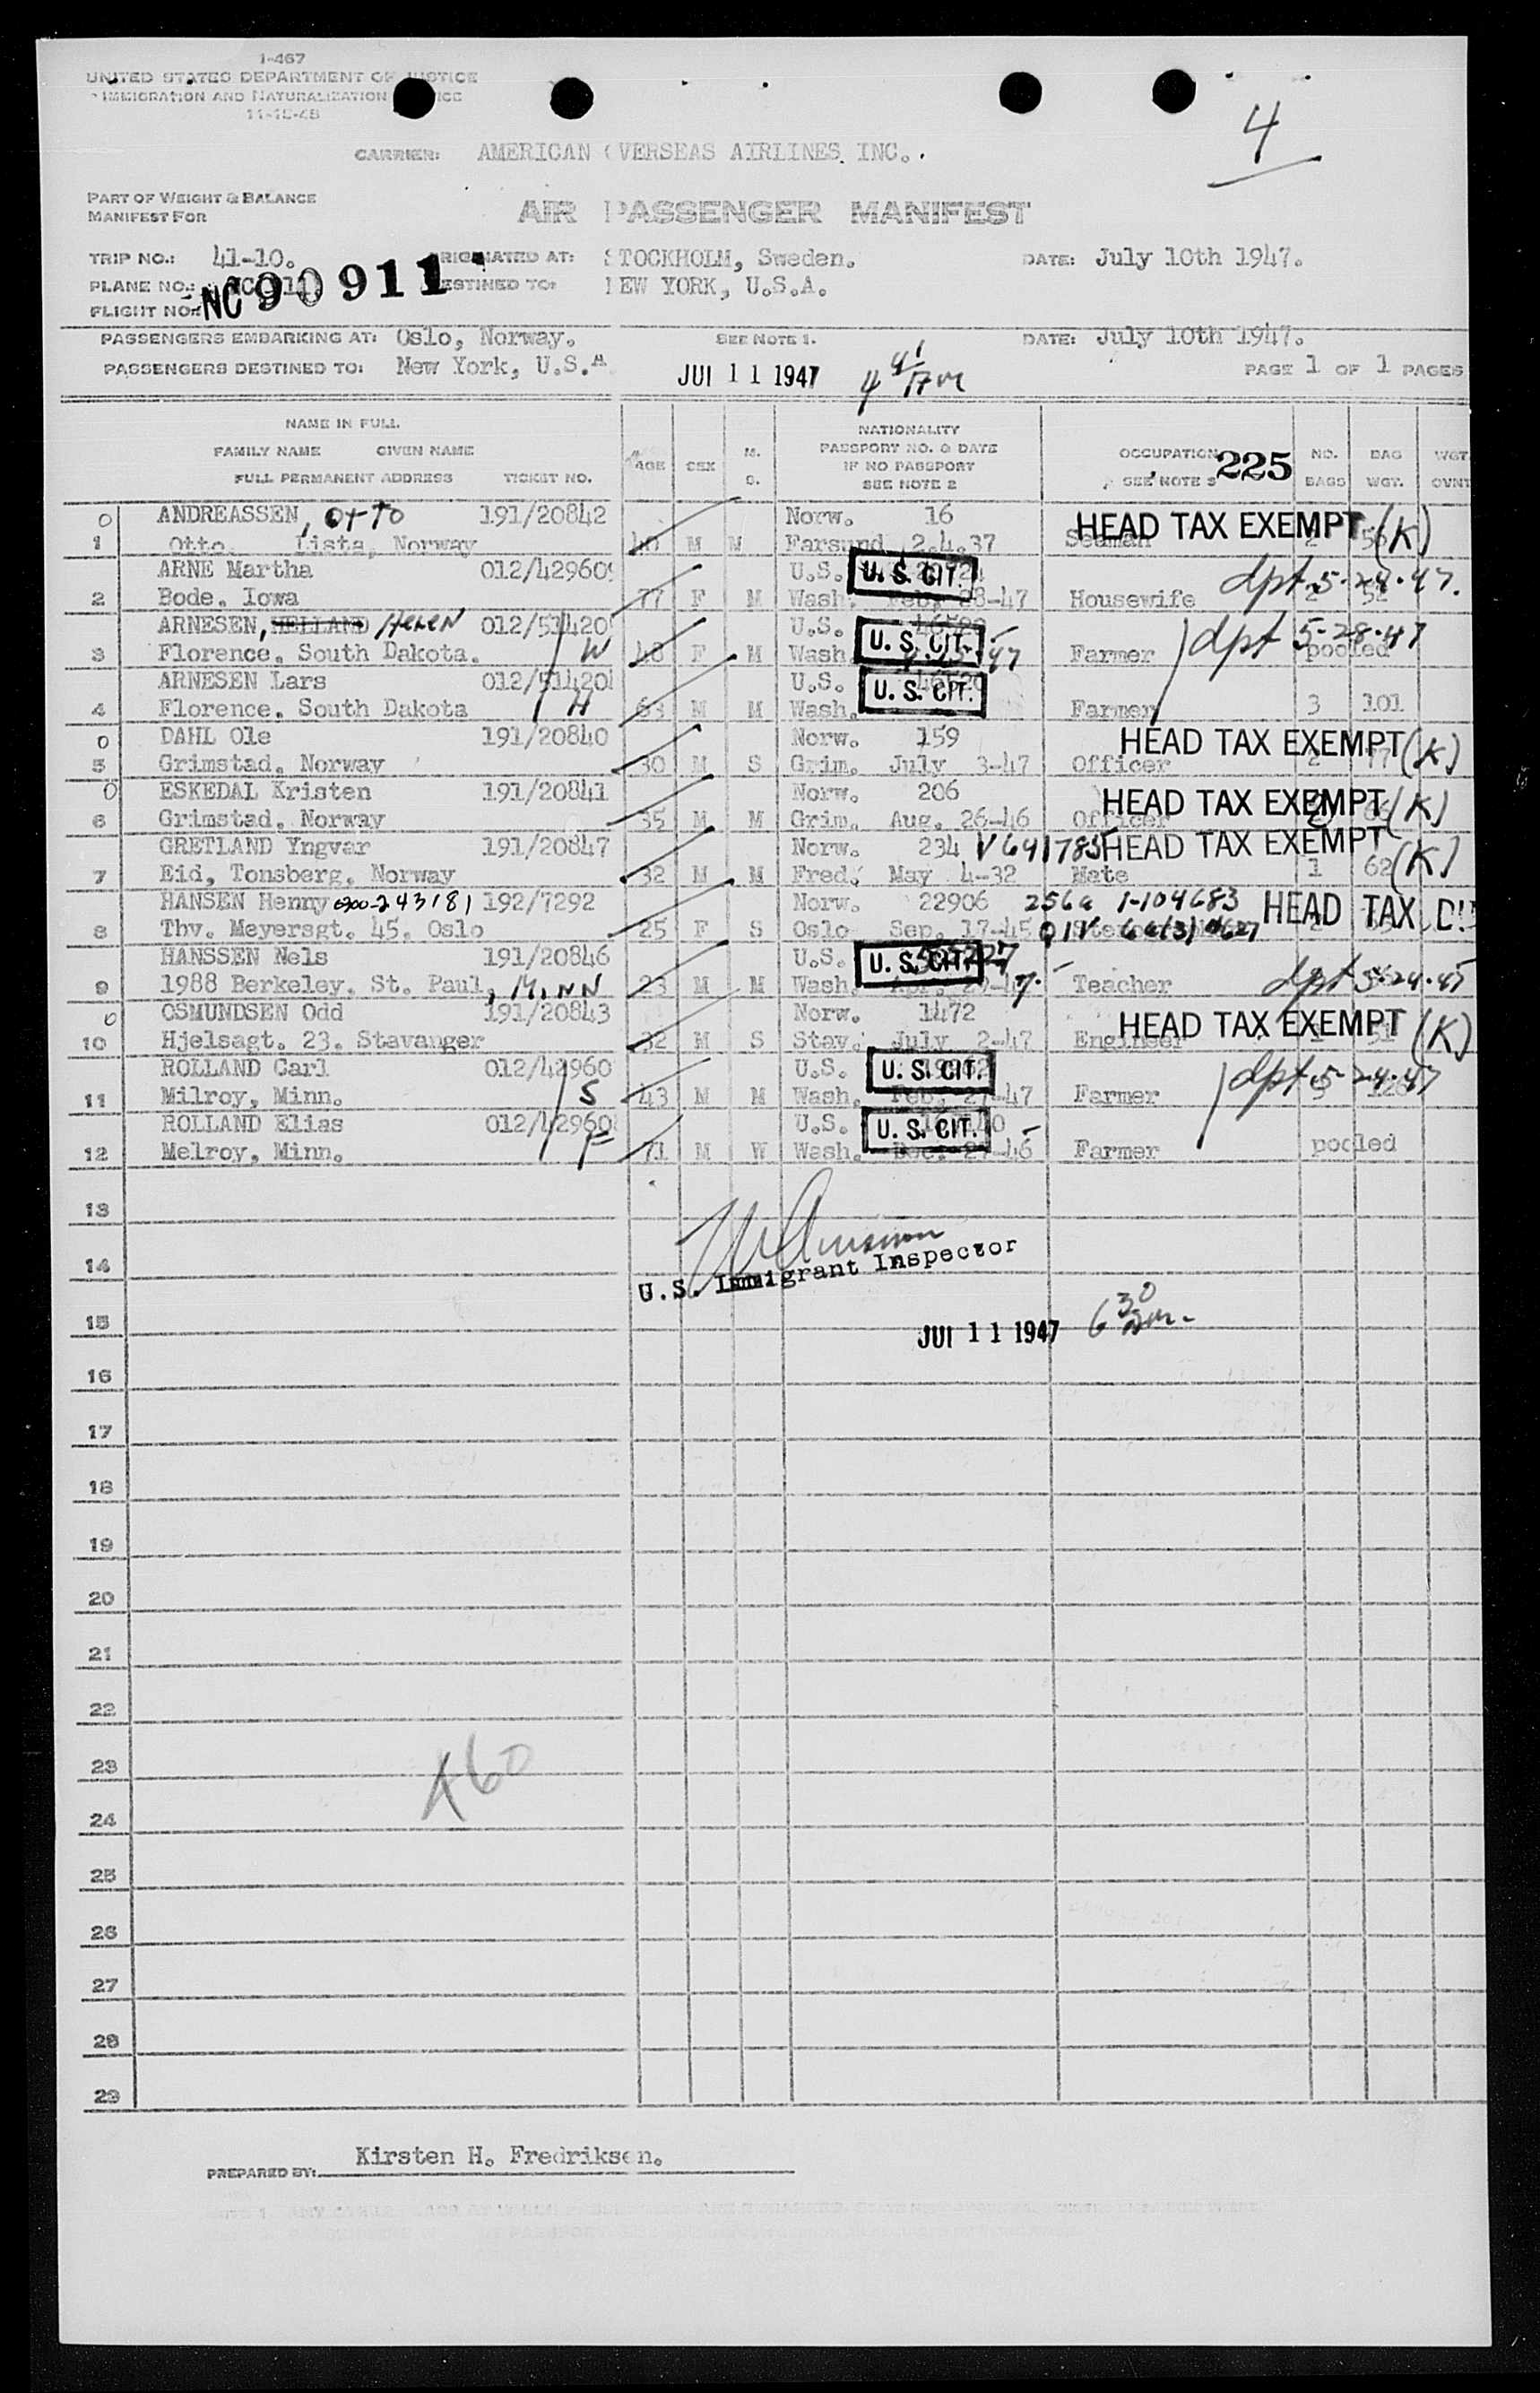 I-467
UNITED STATES DEPARTMENT OF JUSTICE
IMMIGRATION AND NATURALIZATION
4
CARRIER: AMERICAN OVERSEAS AIRLINES INC.
PART OF WEIGHT & BALANCE
MANIFEST FOR
AIR PASSENGER MANIFEST
TRIP NO.: 41-10. ORIGINATED AT: STOCKHOLM, Sweden. DATE: July 10th 1947.
PLANE NO.: DESTINED TO: NEW YORK, U.S.A.
FLIGHT NO.: NC90911
PASSENGERS EMBARKING AT: Oslo, Norway. SEE NOTE 1. DATE: July 10th 1947.
PASSENGERS DESTINED TO: New York, U.S.A. JUL 11 1947 PAGE 1 OF 1 PAGES
NAME IN FULL
FAMILY NAME GIVEN NAME
FULL PERMANENT ADDRESS TICKET NO.
AGE SEX M. S.
NATIONALITY
PASSPORT NO. & DATE
IF NO PASSPORT
SEE NOTE 2
OCCUPATION 225
SEE NOTE 3
NO. BAGS BAG WGT. WGT.
0 ANDREASSEN, Otto 191/20842 Norw. 16 HEAD TAX EXEMPT (K)
1 Otto. Lista, Norway 40 M M Farsund 2.4.37 Seaman 2 56
ARNE Martha 012/42960 U.S. U.S. CIT. dpt 5-24-47.
2 Bode. Iowa 77 F M Wash. Feb. 28-47 Housewife 2 52
ARNESEN, HELLAND Helen 012/51420 U.S. U.S. CIT. dpt 5-28-47
3 Florence. South Dakota. W 48 F M Wash. 47 Farmer pooled
ARNESEN Lars 012/51420 U.S. U.S. CIT.
4 Florence. South Dakota H 63 M M Wash. Farmer 3 101
0 DAHL Ole 191/20840 Norw. 159 HEAD TAX EXEMPT (K)
5 Grimstad. Norway 30 M S Grim. July 3-47 Officer 2 77
0 ESKEDAL Kristen 191/20841 Norw. 206 HEAD TAX EXEMPT (K)
6 Grimstad. Norway 35 M M Grim. Aug. 26-46 Officer
GRETLAND Yngvar 191/20847 Norw. 234 V641785 HEAD TAX EXEMPT (K)
7 Eid, Tonsberg. Norway 32 M M Fred. May 4-32 Mate 1 62
HANSEN Henny 0300-243181 192/7292 Norw. 22906 256a 1-104683 HEAD TAX
8 Thv. Meyersgt. 45. Oslo 25 F S Oslo Sep. 17-45
HANSSEN Nels 191/20846 U.S. U.S. CIT.
9 1988 Berkeley. St. Paul, MINN 23 M M Wash. Teacher dpt 5-24-45
0 OSMUNDSEN Odd 191/20843 Norw. 1472 HEAD TAX EXEMPT (K)
10 Hjelsagt. 23. Stavanger 32 M S Stav. July 2-47 Engineer 1 51
ROLLAND Carl 012/42960 U.S. U.S. CIT. dpt 5-24-47
11 Milroy, Minn. S 43 M M Wash. Feb. 27-47 Farmer
ROLLAND Elias 012/42960 U.S. U.S. CIT.
12 Melroy, Minn. F 71 M W Wash. Dec. 27-46 Farmer pooled
13
14 U.S. Immigrant Inspector
15 JUL 11 1947 6 30
16
17
18
19
20
21
22
23
460
24
25
26
27
28
29
PREPARED BY: Kirsten H. Fredriksen.